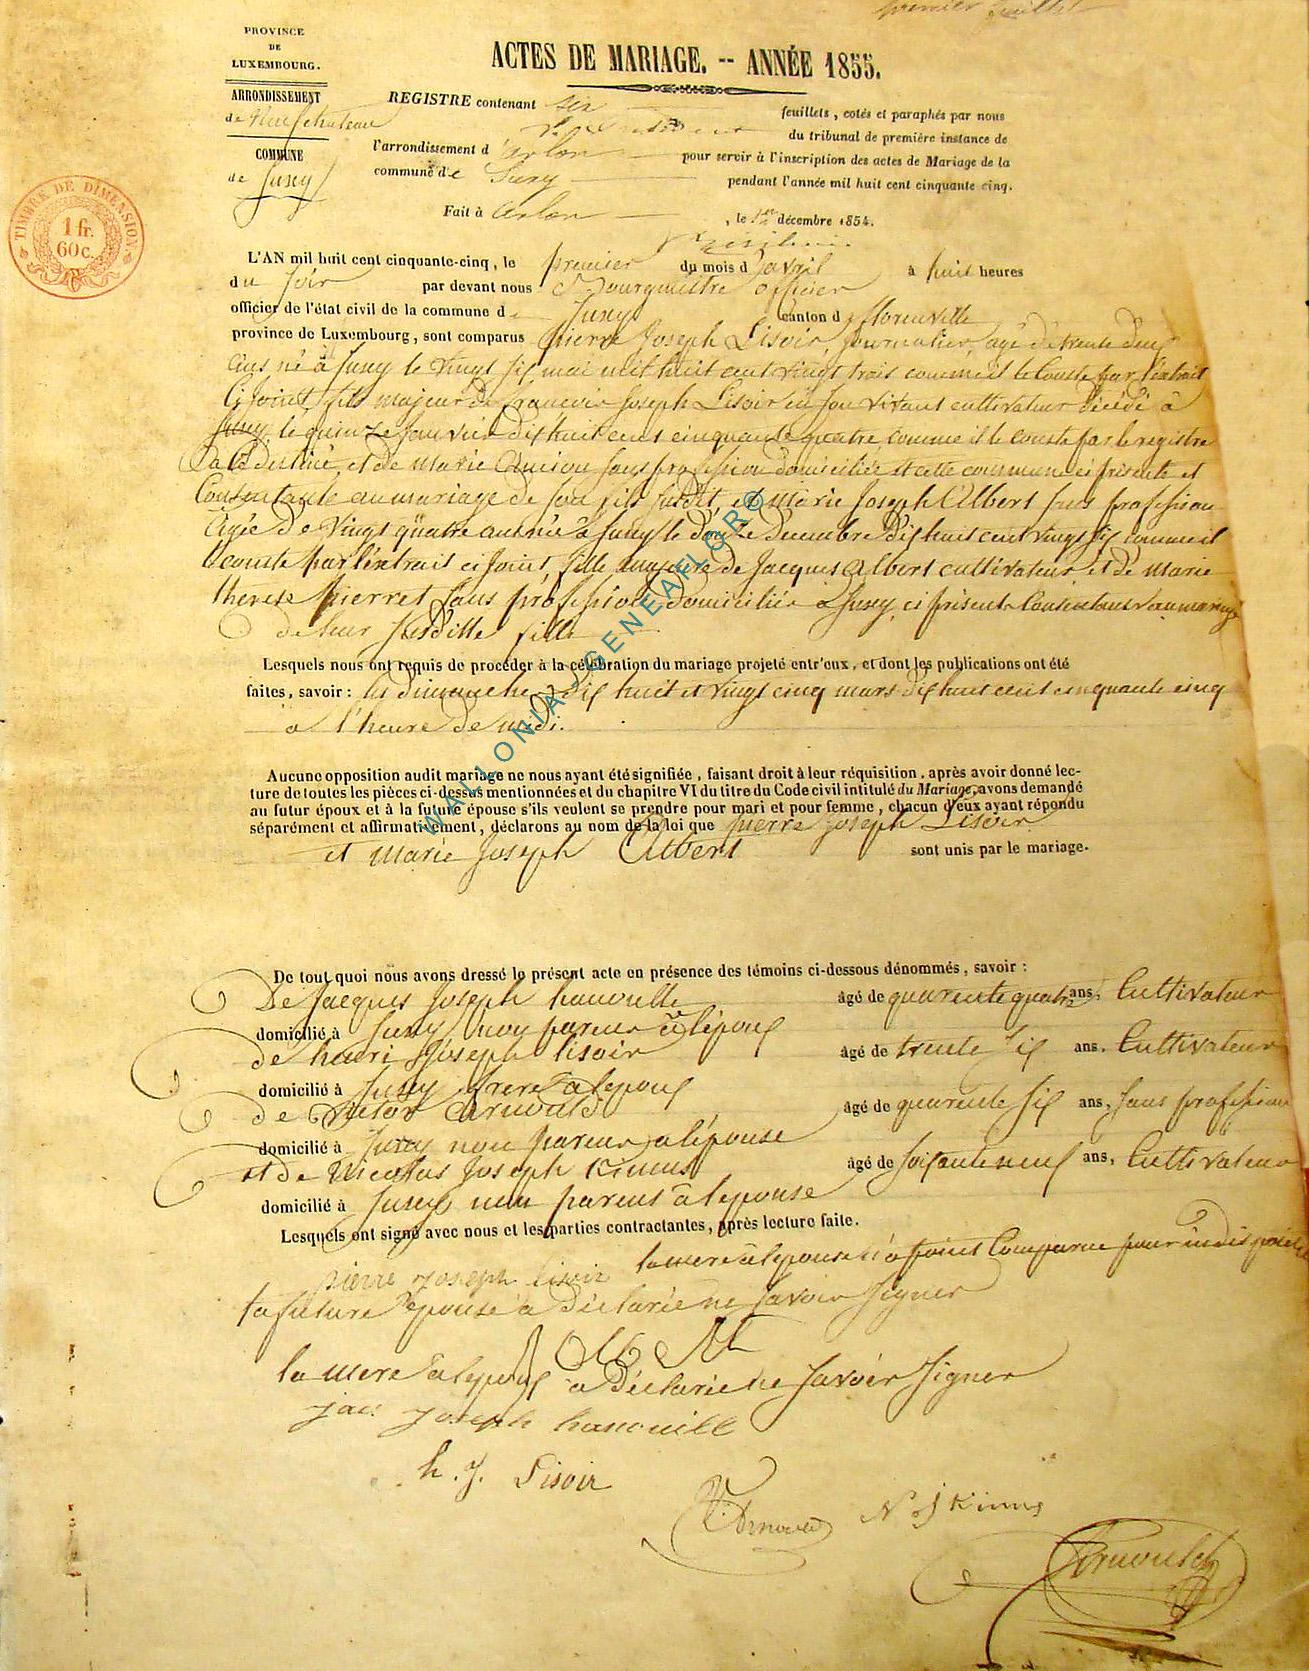 premier feuillet
PROVINCE
DE
LUXEMBOURG.
ACTES DE MARIAGE. -- ANNÉE 1855.
ARRONDISSEMENT
de Neufchateau
COMMUNE
de Suxy
TIMBRE DE DIMENSION
1 fr.
60c.
REGISTRE contenant six feuillets, cotés et paraphés par nous
du tribunal de première instance de
l'arrondissement d'arlon pour servir à l'inscription des actes de Mariage de la
commune de Suxy pendant l'année mil huit cent cinquante cinq.
Fait à arlon, le décembre 1854.
L'AN mil huit cent cinquante-cinq, le premier du mois d'avril à huit heures
du soir par devant nous Bourgmestre officier
officier de l'état civil de la commune de Suxy canton de florenville
province de Luxembourg, sont comparus pierre Joseph Lisoir, journalier, agé de trente deux
ans né à Suxy le vingt six mai mil huit cent vingt trois comme il le conste par l'extrait
ci joint, fils majeur de françois Joseph Lisoir en son vivant cultivateur décédé à
Suxy, le quinze janvier dix huit cent cinquante quatre comme il le conste par le registre
à ce destiné, et de marie sans profession domiciliée à cette commune ci présente et
Consentante au mariage de son fils susdit, et marie Joseph Albert sans profession
Agée de vingt quatre ans née à Suxy le douze Décembre Dix huit cent vingt six comme il
conste par l'extrait ci joint, fille majeure de Jacques Albert cultivateur et de marie
therese pierret sans profession domiciliés à Suxy, ci présents Consentans au mariage
de leur susditte fille
Lesquels nous ont requis de procéder à la célébration du mariage projeté entr'eux, et dont les publications ont été
faites, savoir : les dimanches dix huit et vingt cinq mars dix huit cent cinquante cinq
a l'heure de midi.
Aucune opposition audit mariage ne nous ayant été signifiée, faisant droit à leur réquisition, après avoir donné lec-
ture de toutes les pièces ci-dessus mentionnées et du chapitre VI du titre du Code civil intitulé du Mariage, avons demandé
au futur époux et à la future épouse s'ils veulent se prendre pour mari et pour femme, chacun d'eux ayant répondu
séparément et affirmativement, déclarons au nom de la loi que pierre Joseph Lisoir
et marie Joseph Albert sont unis par le mariage.
De tout quoi nous avons dressé le présent acte en présence des témoins ci-dessous dénommés, savoir :
De Jacques Joseph hanouille âgé de quarente quatre ans. Cultivateur
domicilié à Suxy non parent à l'époux
de henri Joseph lisoir âgé de trente six ans. Cultivateur
domicilié à Suxy frere a l'epoux
de victor Arnould âgé de quarente six ans, sans profession
domicilié à Suxy non parent a l'épouse
et de Nicolas Joseph Kinus âgé de soixante neuf ans, Cultivateur
domicilié à Suxy non parent à l'epouse
Lesquels ont signé avec nous et les parties contractantes, après lecture faite.
la mere à l'epouse n'a point Comparue pour
pierre joseph lisoir
la future épouse a Déclaré ne savoir signer
la mere à l'epoux a Déclaré ne savoir signer
jac. joseph hanouille
h. j. Lisoir
V. Arnould
N. J Kinus
Arnould
WALLONIA-GENEAFLOR©